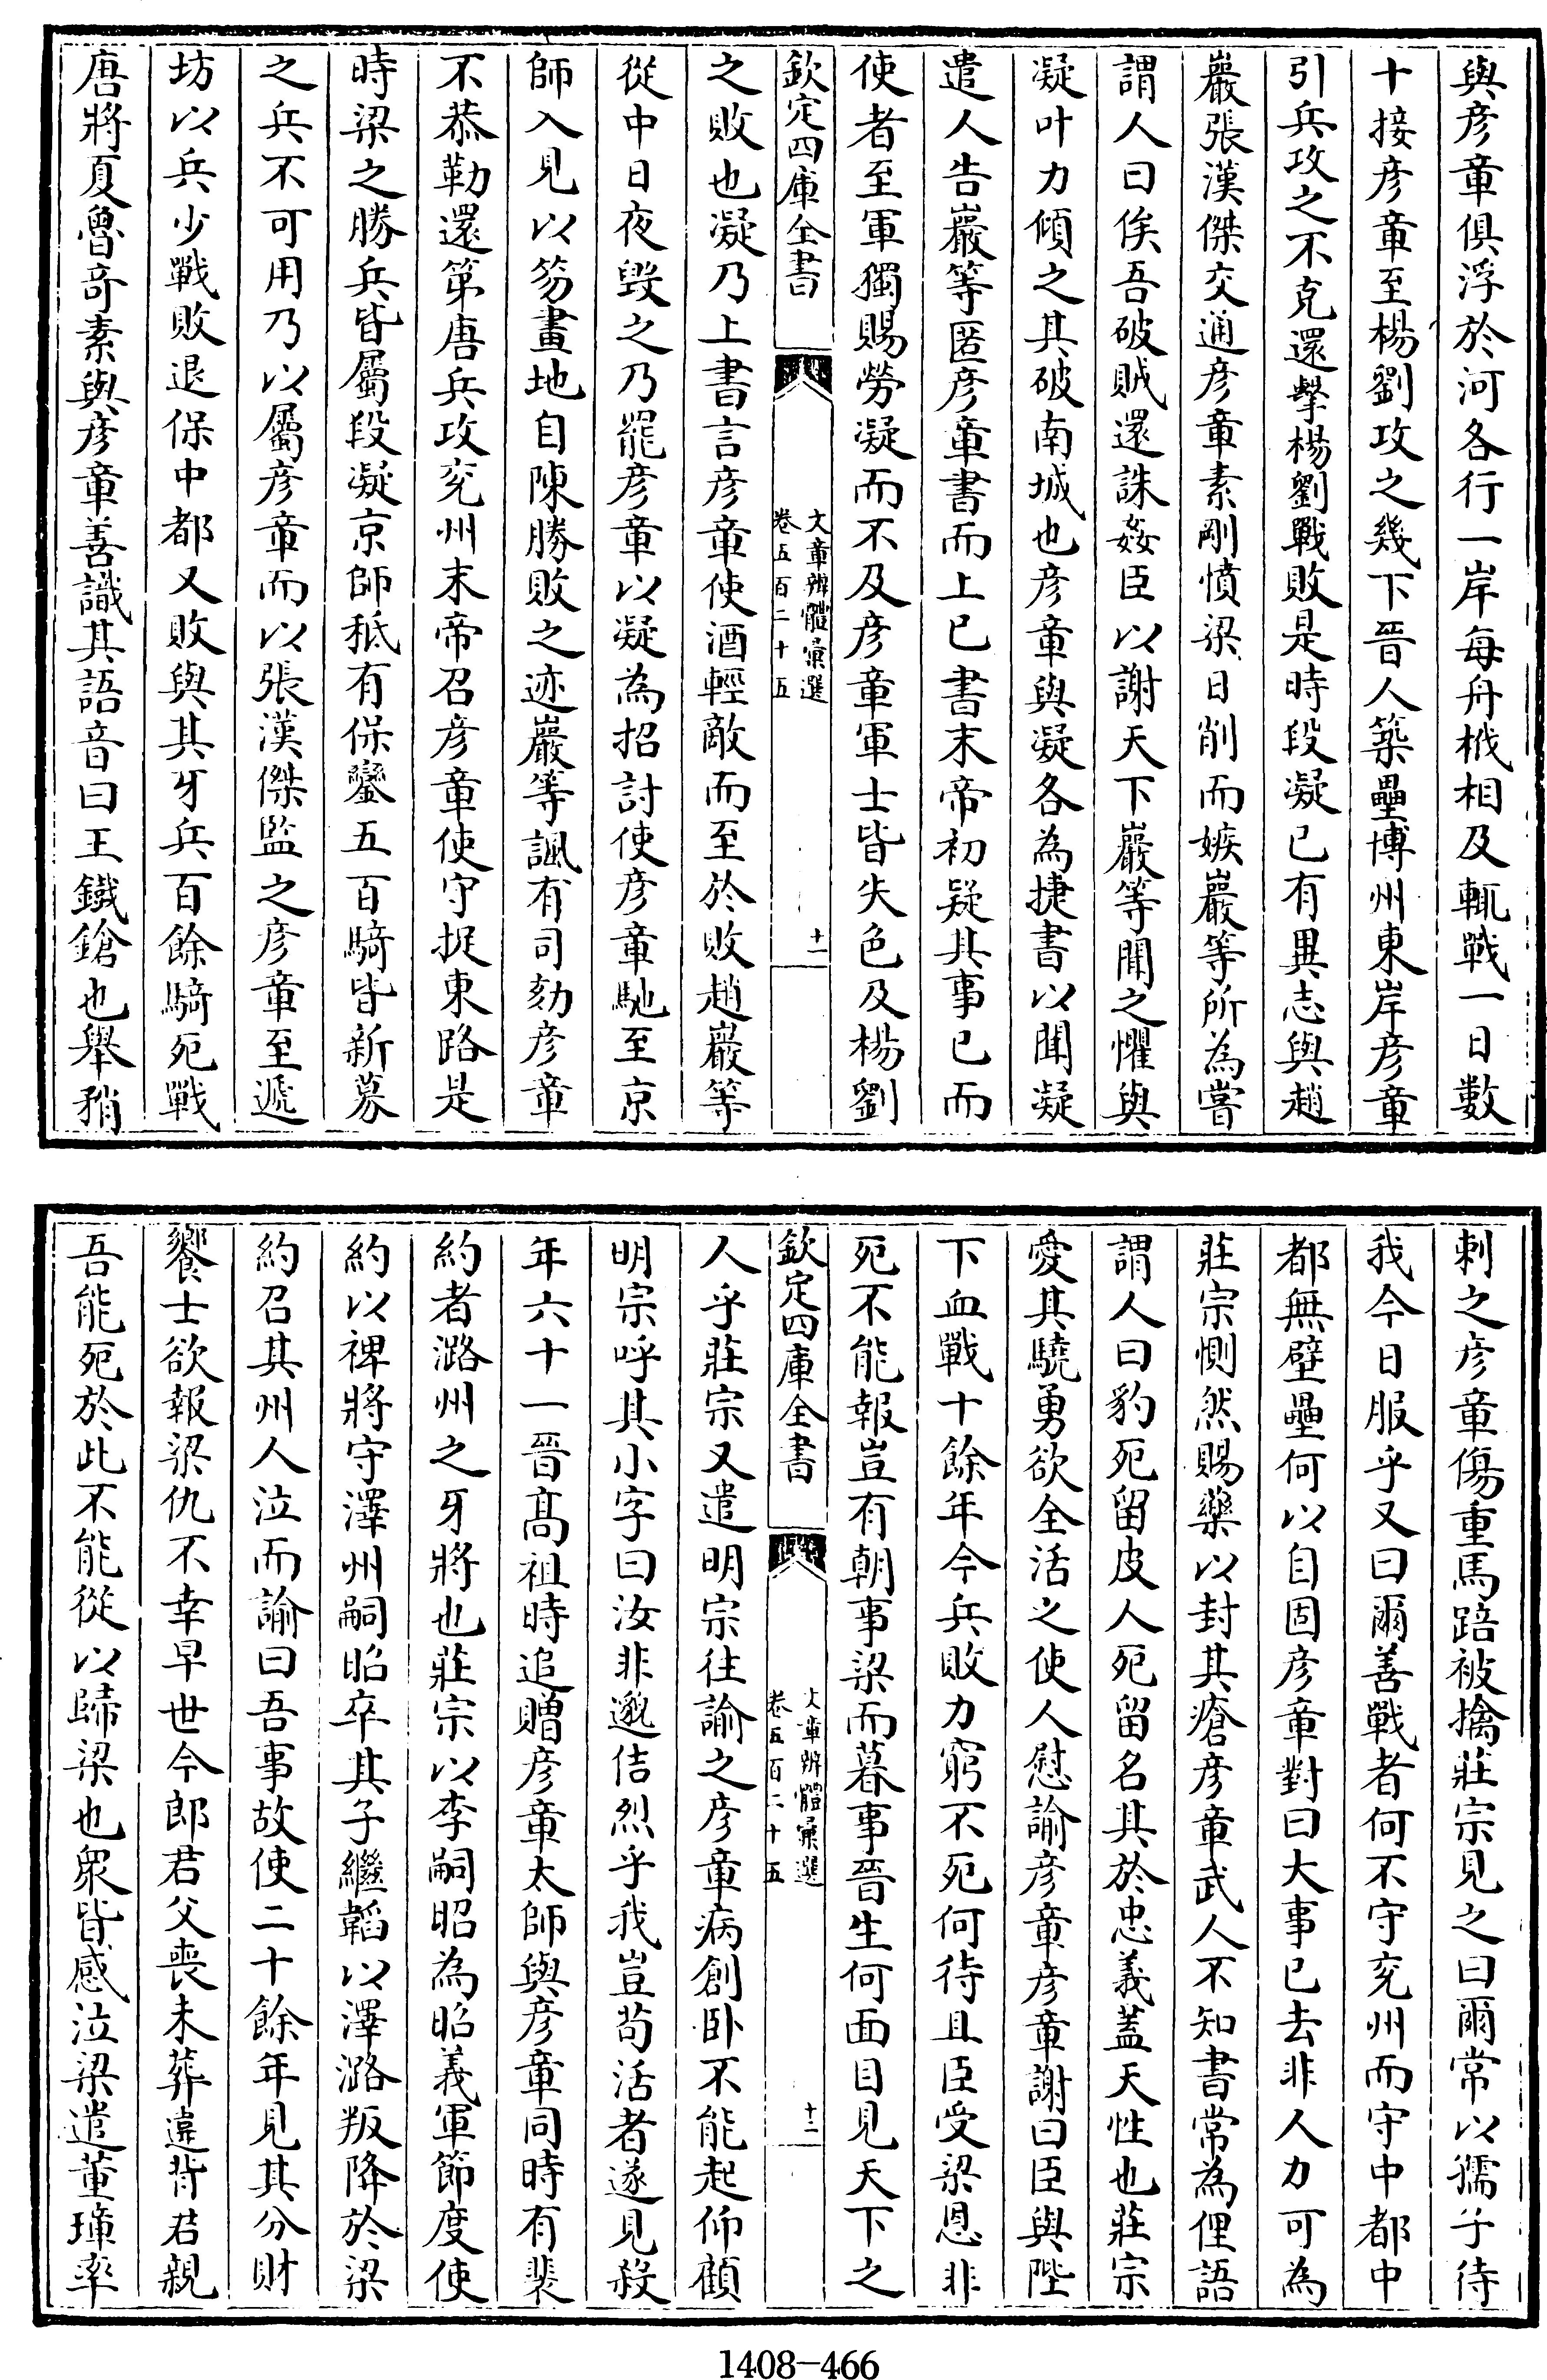 與彥章俱浮於河各行一岸每舟栰相及輒戰一日數
十接彥章至楊劉攻之幾下晉人築壘博州東岸彥章
引兵攻之不克還擊楊劉戰敗是時段凝已有異志與趙
巖張漢傑交通彥章素剛憤梁日削而嫉巖等所為嘗
謂人曰俟吾破賊還誅姦臣以謝天下巖等聞之懼與
凝叶力傾之其破南城也彥章與凝各為捷書以聞凝
遣人告巖等匿彥章書而上已書末帝初疑其事已而
使者至軍獨賜勞凝而不及彥章軍士皆失色及楊劉
欽定四庫全書
文章辨體彙選
卷五百二十五
十一
之敗也凝乃上書言彥章使酒輕敵而至於敗趙巖等
從中日夜毀之乃罷彥章以凝為招討使彥章馳至京
師入見以笏畫地自陳勝敗之迹巖等諷有司劾彥章
不恭勒還第唐兵攻兖州末帝召彥章使守捉東路是
時梁之勝兵皆屬段凝京師秪有保鑾五百騎皆新募
之兵不可用乃以屬彥章而以張漢傑監之彥章至遞
坊以兵少戰敗退保中都又敗與其牙兵百餘騎死戰
唐將夏魯奇素與彥章善識其語音曰王鐵鎗也舉矟
刺之彥章傷重馬踣被擒莊宗見之曰爾常以孺子待
我今日服乎又曰爾善戰者何不守兖州而守中都中
都無壁壘何以自固彥章對曰大事已去非人力可為
莊宗惻然賜藥以封其瘡彥章武人不知書常為俚語
謂人曰豹死留皮人死留名其於忠義蓋天性也莊宗
愛其驍勇欲全活之使人慰諭彥章彥章謝曰臣與陛
下血戰十餘年今兵敗力窮不死何待且臣受梁恩非
死不能報豈有朝事梁而暮事晉生何面目見天下之
欽定四庫全書
文章辨體彙選
卷五百二十五
十二
人乎莊宗又遣明宗往諭之彥章病創卧不能起仰顧
明宗呼其小字曰汝非邈佶烈乎我豈茍活者遂見殺
年六十一晉髙祖時追贈彥章太師與彥章同時有裴
約者潞州之牙將也莊宗以李嗣昭為昭義軍節度使
約以裨將守澤州嗣昭卒其子繼韜以澤潞叛降於梁
約召其州人泣而諭曰吾事故使二十餘年見其分財
饗士欲報梁仇不幸早世今郎君父喪未葬違背君親
吾能死於此不能從以歸梁也衆皆感泣梁遣董璋率
1408-466